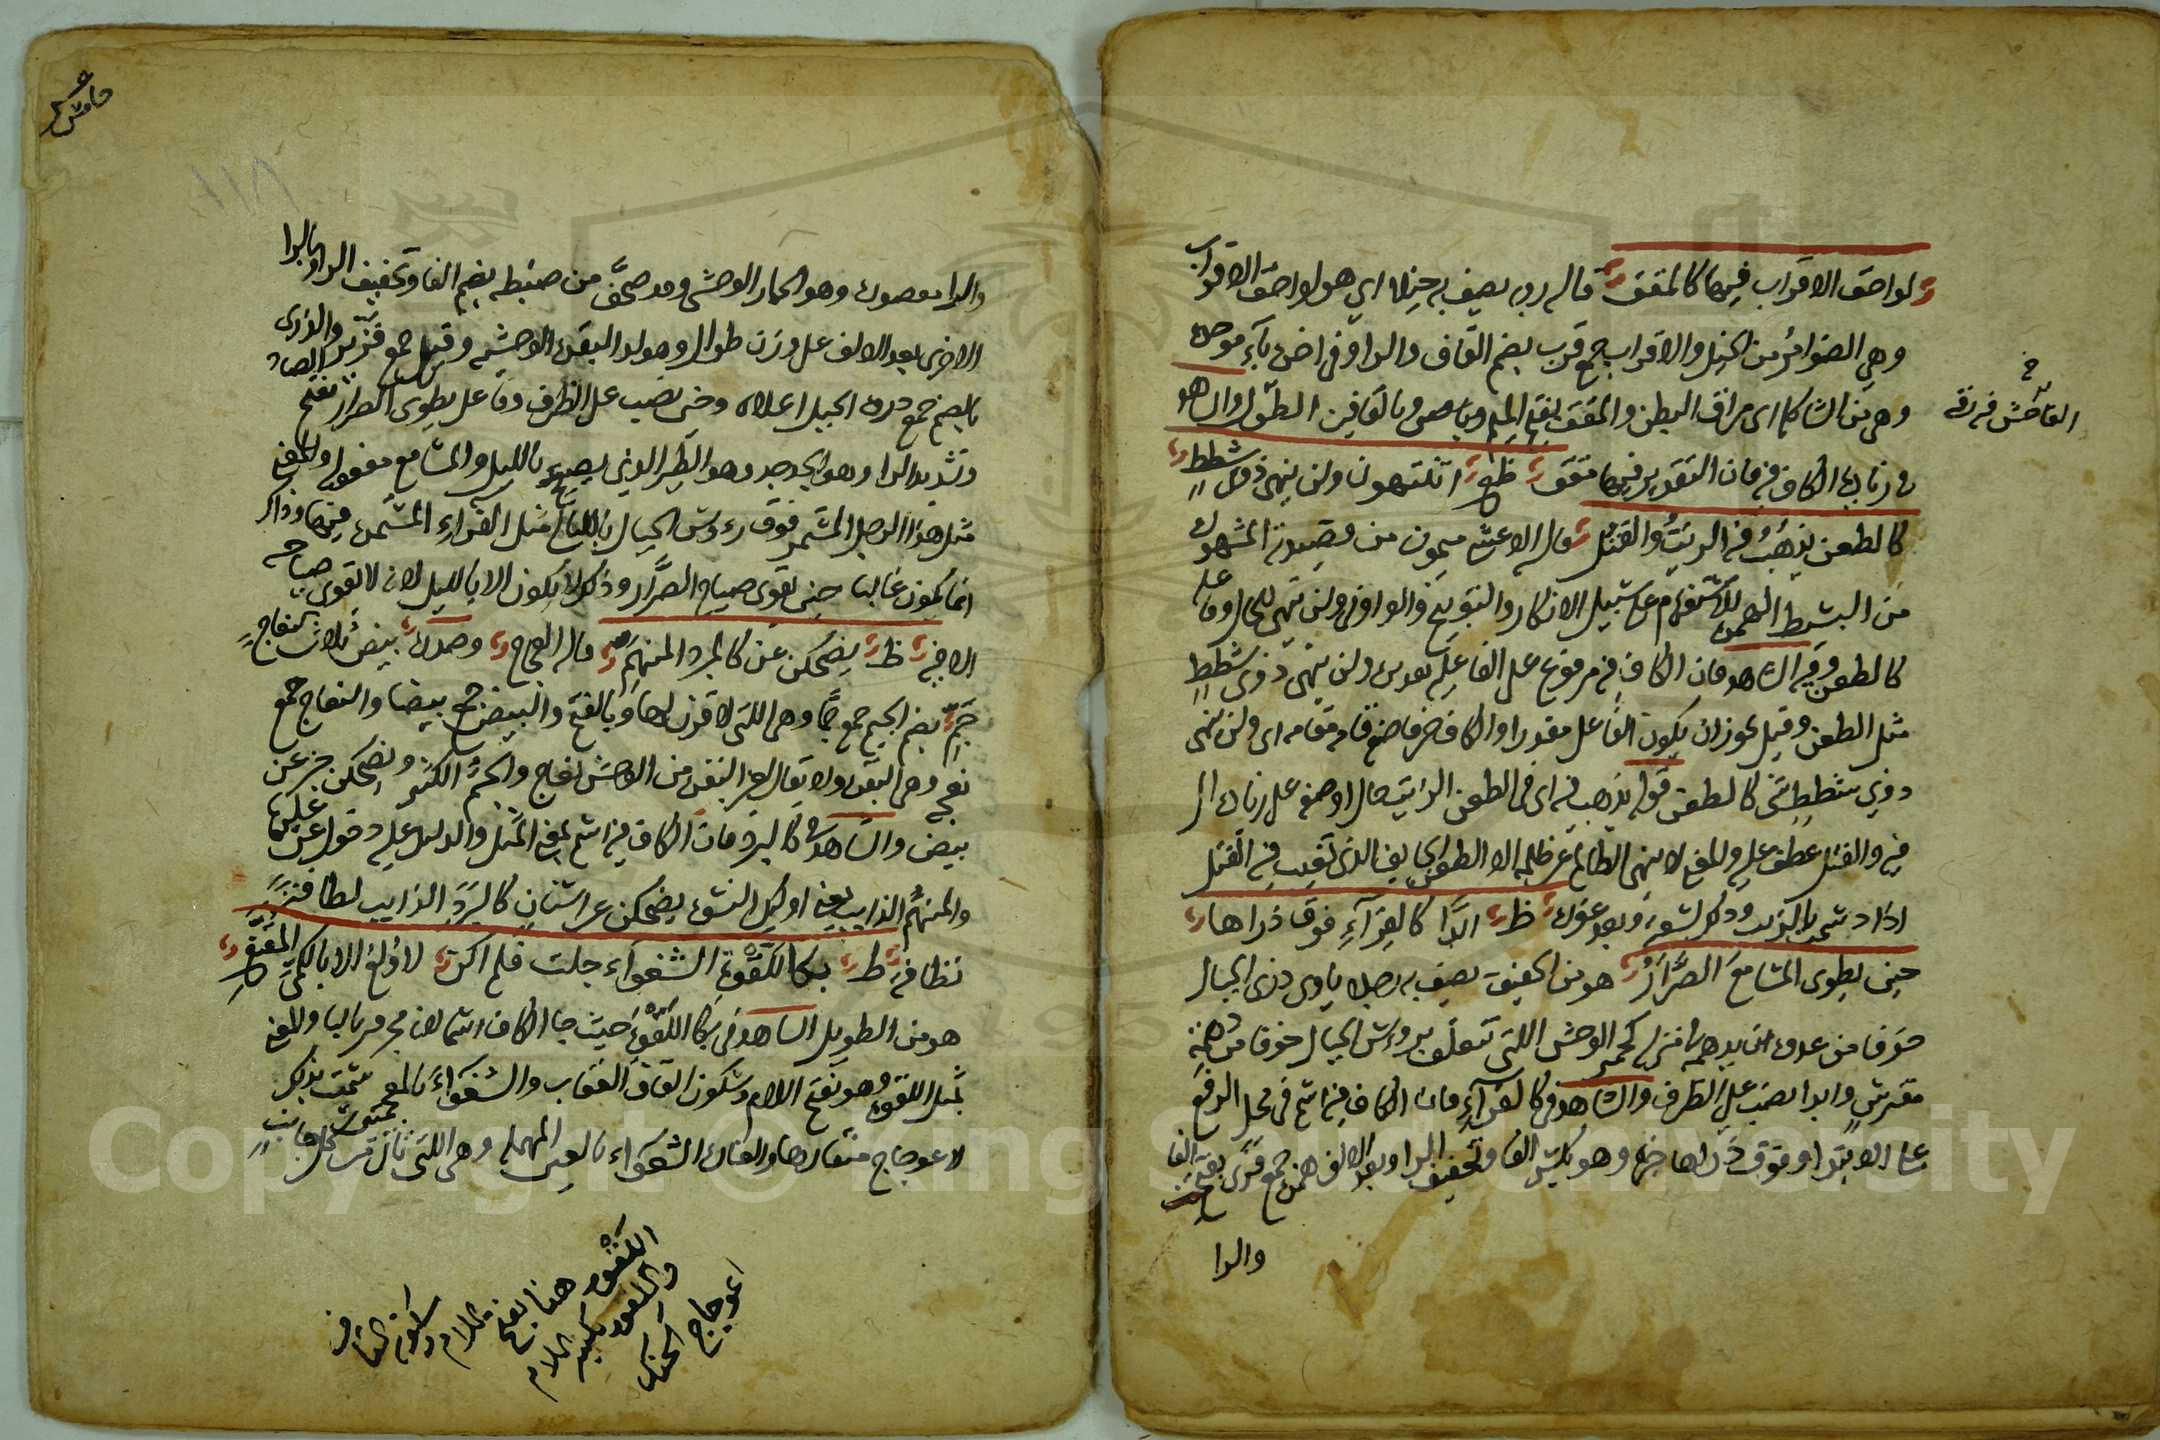 لواحق الاقراب فيها كالمقق قاله روبه يصف به خيلا اي هو لواحق الاقراب
وهي الضوامر من الخيل والاقراب جمع قرب بضم القاف والراء وفي اخره باء موحده
وهي من الشاكلة اي مراق البطن والمقق بفتح الميم وبالقافين الطول والشاهد
في زيادة الكاف فيه فان التقدير فيها مقق ظ اتنتهون ولن ينهى ذوي شطط
كالطعن يذهب فيه الزيت والفتل قاله الاعشى ميمون من قصيدته المشهورة
من البسيط الهمزة للاستفهام على سبيل الانكار والتوبيخ والواو في ولن ينهى للحال
كالطعن وفيه الشاهد فان الكاف فيه مرفوع على الفاعلية تقديره ولن ينهى ذوي شطط
مثل الطعن وقيل يجوز ان يكون الفاعل مقدرا والكاف حرفا صفة قامه مقامه اي ولن ينهى
ذوي شطط شي كالطعن قوله يذهب فيه اي في الطعن الزيت حال او صفة على زيادة ال
فيه والفتل عطف عليه والمعنى لا ينهى الظالم عن ظلمه الا الطعن الجايف الذي تغيب فيه الفتل
اذا دسمت بالزيت وذكر لشعره ظ ابدا كالفراء فوق ذراها
حين يطوي المسامع الصرار هو من الخفيف يصف به رجلا ياوي ذرى الجبال
خوفا من عدوه ان يدهمه في منزله كحمر الوحش اللتي تتعلق بروءس الجبال خوفا من
مفترس وابدا نصب على الظرف والشاهد في كالفراء فان الكاف فيه اسم في محل الرفع
على الابتدا وفوق ذراها خبره وهو بكسر الفا وتخفيف الرا وبعد الالف همزه جمع فرى بفتح الفا
والرا
الفاحش فيه رقه
والرا مقصوره وهو الحمار الوحشى وقد صحف من ضبطه بضم الفا وتخفيف الرا وبالرا
الاخرى بعد الالف على وزن طوال وهو ولد البقرة الوحشيه وقيل جمع فرير والذرى
بالضم جمع ذروه الجبل اعلاه وحين نصب على الظرف وفاعل يطوي الصرار بفتح الصاد
وتشديد الرا وهو الجدجد وهو الطير الذي يصيح بالليل والمسامع مفعوله والمعنى
مثل هذا الرجل المشمر فوق روءس الجبال مثل الفراء المشمره فيها وذلك
انما يكون غالبا حين يقوى صياح الصرار وذلك لا يكون الا بالليل لانه لا تقوى صياحه
الا فيه ظ يضحكن عن كالبرد المنهم قاله العجاج وصدره بيض ثلاث كنعاج
جم بضم الجيم جمع جما وهي اللتي لا قرن لها وبالفتح والبيض جمع بيضا والنعاج جمع
نعجه وهي البقره ولا يقال لغير البقر من الوحش نعاج والجم الكثير ويضحكن خبر عن
بيض والشاهد في كالبرد فان الكاف فيه اسم بمعنى المثل والدليل عليه دخول عن عليها
والمنهم الذايب يعني اوليك النسوة يضحكن عن اسنان كالبرد الذايب لطافة
نظافه ظ بكا اللقوة الشغواء جلت فلم اكن لاولع الا بالكمي المقنع
هو من الطويل الشاهد في بكا اللقوة حيث جا الكاف اسما لانه مجرور بالبا والمعنى
بمثل اللقوه وهو بفتح اللام وسكون القاف العقاب والشغواء بالمعجمتين سميت بذلك
لاعوجاج منقارها والشعواء بالعين المهمله وهي اللتي تاتي من كل جانب
اللقوه هنا بفتح اللام وسكون القاف
واللقوه بكسر اللام
اعوجاج الحنك
١١٨